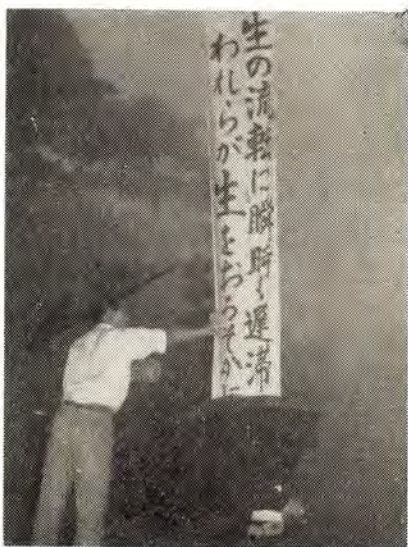 生の流転に瞬時も遅滞
われらが生をおろそかに